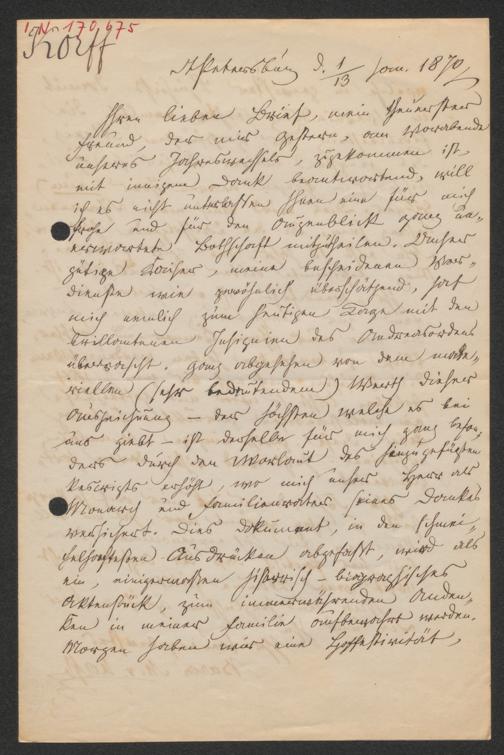 I Nr 170,675
Korff
St Petersburg d. 1/13 Jan. 1870
Ihren lieben Brief, mein theuerster
Freund, der mir gestern, am Vorabende
unseres Jahreswechsels, zugekommen ist,
mit innigem Dank beantwortend, will
ich es nicht unterlassen Ihnen eine für mich
frohe und für den Augenblick ganz un-
erwartete Bothschaft mitzutheilen. Unser
gütige Kaiser, meine bescheidenen Ver-
dienste wie gewöhnlich überschätzend, hat
mich nemlich zum heutigen Tage mit den
brillantenen Insignien des Andreasordens
überrascht. Ganz abgesehen von dem mate-
riellen (sehr bedeutendem) Werth dieser
Auszeichnung – der höchsten welche es bei
uns giebt – ist derselbe für mich ganz beson-
ders durch den Worlaut des hinzugefügten
Rescripts erhöht, wo mich unser Herr als
Monarch und Familienvater seines Dankes
versichert. Dies Dokument, in den schmei-
chelhaftesten Ausdrücken abgefasst, wird als
ein, einigermassen historisch-biographisches
Aktenstück, zum immerwährenden Anden-
ken in meiner Familie aufbewahrt werden.
Morgen haben wir eine Hoffestivität,